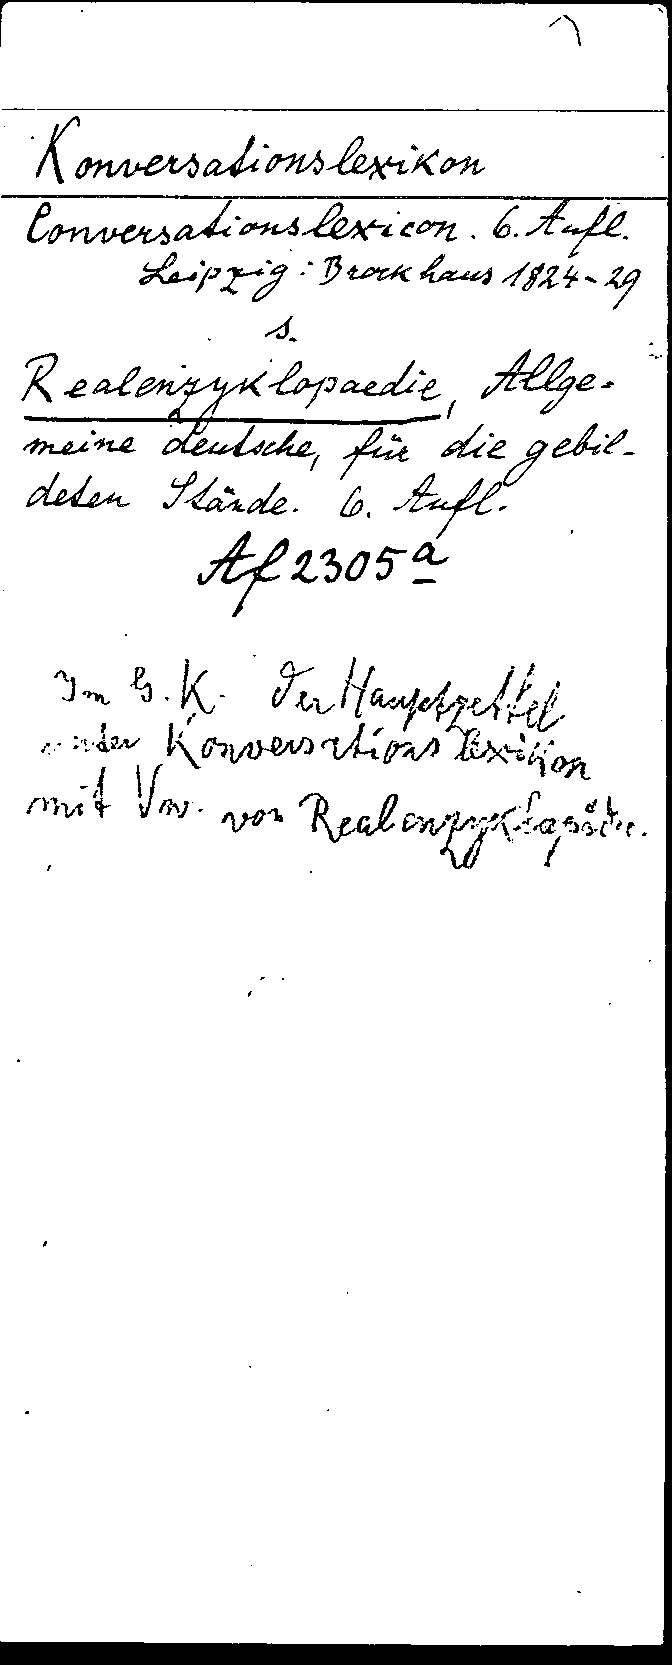 Konversationslexikon
Conversationslexicon. 6. Aufl.
Leipzig: Brockhaus 1824-29
s.
Realenzyklopaedie, Allge-
meine deutsche, für die gebil-
deten Stände. 6. Aufl.
Af 2305 a
Im G. K. der Hauptzettel
unter Konversationslexikon
mit Vw. von Realenzyklopädie.